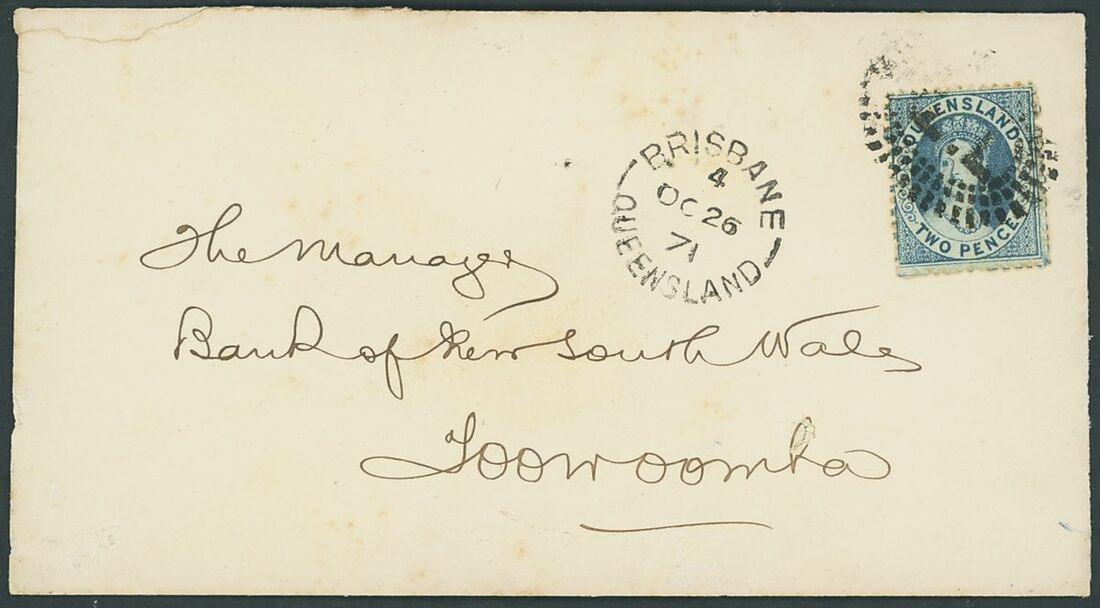 QUEENSLAND
TWO PENCE
BRISBANE
4
OC 26
71
QUEENSLAND
The Manager
Bank of New South Wales
Toowoomba